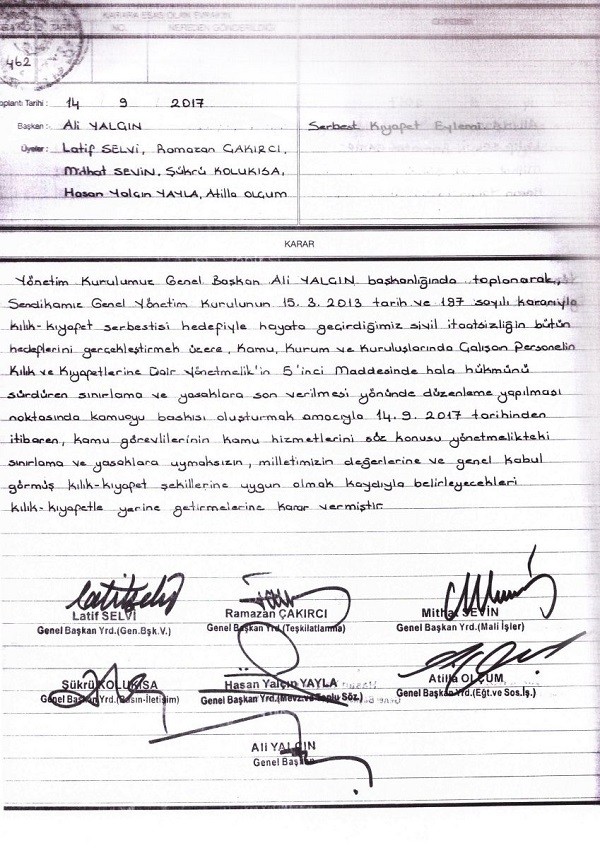 KARARA ESAS OLAN EVRAKIN
TARİH NO. NEREDEN GÖNDERİLDİĞİ
462
Toplantı Tarihi: 14 9 2017
Başkan: Ali YALÇIN
Serbest Kıyafet Eylemi
Üyeler: Latif SELVİ, Ramazan ÇAKIRCI,
Mithat SEVİN, Şükrü KOLUKISA,
Hasan Yalçın YAYLA, Atilla OLÇUM
KARAR
Yönetim Kurulumuz Genel Başkan Ali YALÇIN başkanlığında toplanarak,
Sendikamız Genel Yönetim Kurulunun 15.3.2013 tarih ve 187 sayılı kararıyla
kılık-kıyafet serbestisi hedefiyle hayata geçirdiğimiz sivil itaatsizliğin bütün
hedeflerini gerçekleştirmek üzere, Kamu, Kurum ve Kuruluşlarında Çalışan Personelin
Kılık ve Kıyafetlerine Dair Yönetmelik'in 5'inci Maddesinde hala hükmünü
sürdüren sınırlama ve yasaklara son verilmesi yönünde düzenleme yapılması
noktasında kamuoyu baskısı oluşturmak amacıyla 14.9.2017 tarihinden
itibaren, kamu görevlilerinin kamu hizmetlerini söz konusu yönetmelikteki
sınırlama ve yasaklara uymaksızın, milletimizin değerlerine ve genel kabul
görmüş kılık-kıyafet şekillerine uygun olmak kaydıyla belirleyecekleri
kılık-kıyafetle yerine getirmelerine karar vermiştir.
Latif SELVİ
Genel Başkan Yrd.(Gen.Bşk.V.)
Ramazan ÇAKIRCI
Genel Başkan Yrd.(Teşkilatlanma)
Mithat SEVİN
Genel Başkan Yrd.(Mali İşler)
Şükrü KOLUKISA
Genel Başkan Yrd.(Basın-İletişim)
Hasan Yalçın YAYLA
Genel Başkan Yrd.(Mevz.ve Toplu Söz.)
Atilla OLÇUM
Genel Başkan Yrd.(Eğt.ve Sos.İş.)
Ali YALÇIN
Genel Başkan